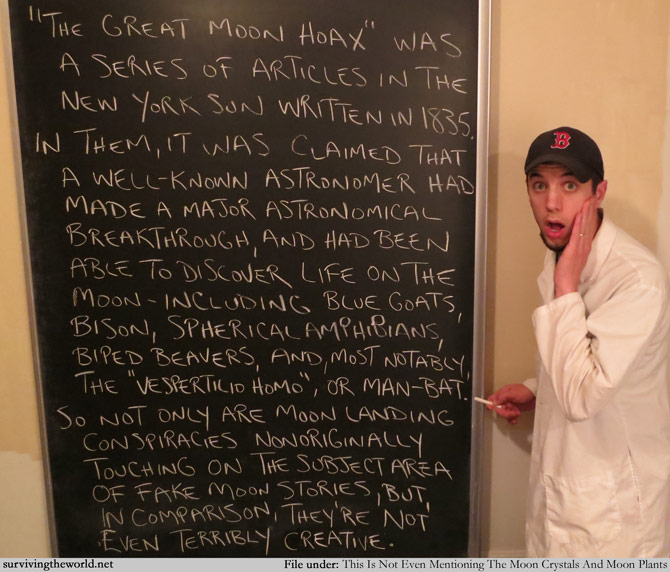 "THE GREAT MOON HOAX" WAS
A SERIES OF ARTICLES IN THE
NEW YORK SUN WRITTEN IN 1835.
IN THEM, IT WAS CLAIMED THAT
A WELL-KNOWN ASTRONOMER HAD
MADE A MAJOR ASTRONOMICAL
BREAKTHROUGH, AND HAD BEEN
ABLE TO DISCOVER LIFE ON THE
MOON - INCLUDING BLUE GOATS,
BISON, SPHERICAL AMPHIBIANS,
BIPED BEAVERS, AND, MOST NOTABLY,
THE "VESPERTILIO HOMO", OR MAN-BAT.
SO NOT ONLY ARE MOON LANDING
CONSPIRACIES NONORIGINALLY
TOUCHING ON THE SUBJECT AREA
OF FAKE MOON STORIES, BUT,
IN COMPARISON, THEY'RE NOT
EVEN TERRIBLY CREATIVE.
B
survivingtheworld.net
File under: This Is Not Even Mentioning The Moon Crystals And Moon Plants